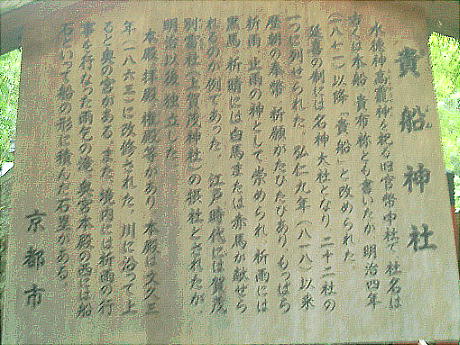 貴船神社
水徳神高龗神を祀る旧官幣中社で、社名は
古くは木船、貴布祢とも書いたが、明治四年
(一八七一)以降「貴船」と改められた。
延喜の制には名神大社となり、二十二社の
一つに列せられた。弘仁九年(八一八)以来
歴朝の奉幣・祈願がたびたびあり、もっぱら
祈雨・止雨の神として崇められ、祈雨には
黒馬、祈晴には白馬または赤馬が献せら
れるのが例であった。江戸時代には賀茂
別雷社(上賀茂神社)の摂社とされたが、
明治以後独立した。
本殿、拝殿、権殿等があり、本殿は文久三
年(一八六三)に改修された。川に沿って上
ると奥の宮がある。また、境内には祈雨の行
事を行なった雨乞の滝、奥宮本殿の西には船
石といって船の形に積んだ石塁がある。
京都市